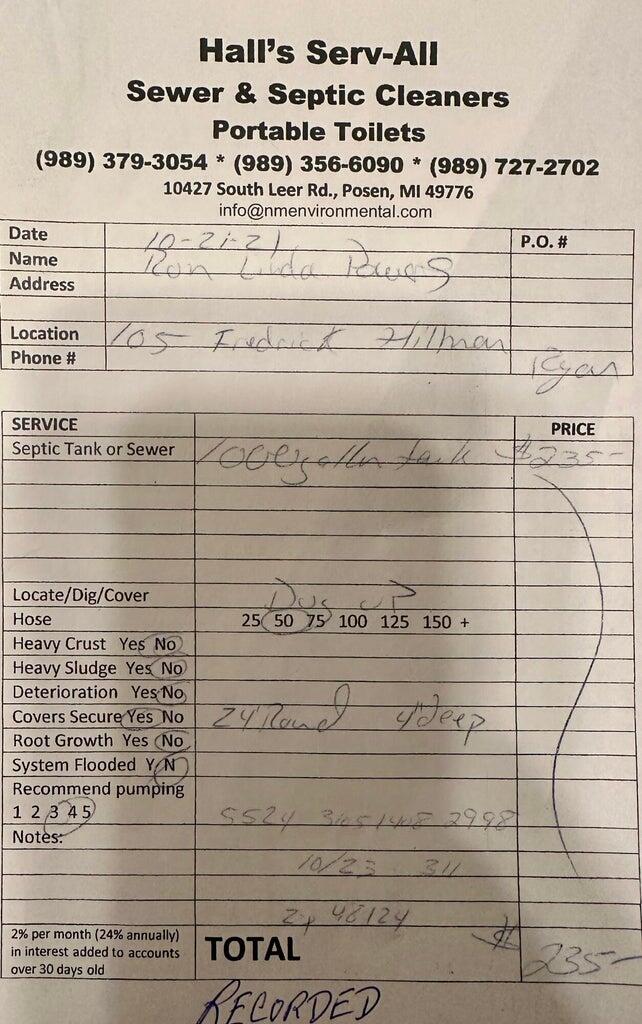 Hall's Serv-All
Sewer & Septic Cleaners
Portable Toilets
(989) 379-3054 * (989) 356-6090 * (989) 727-2702
10427 South Leer Rd., Posen, MI 49776
info@nmenvironmental.com
Date 10-21-21 P.O. #
Name Ron Linda Powers
Address
Location 105 Fredrick Hillman
Phone # Ryan
SERVICE PRICE
Septic Tank or Sewer 1000 gallon tank $235-
Locate/Dig/Cover Dug up
Hose 25 50 75 100 125 150 +
Heavy Crust Yes No
Heavy Sludge Yes No
Deterioration Yes No
Covers Secure Yes No 24" Round 4" deep
Root Growth Yes No
System Flooded Y N
Recommend pumping
1 2 3 4 5
Notes:
Zip 48124
2% per month (24% annually)
in interest added to accounts
over 30 days old
TOTAL $235-
RECORDED